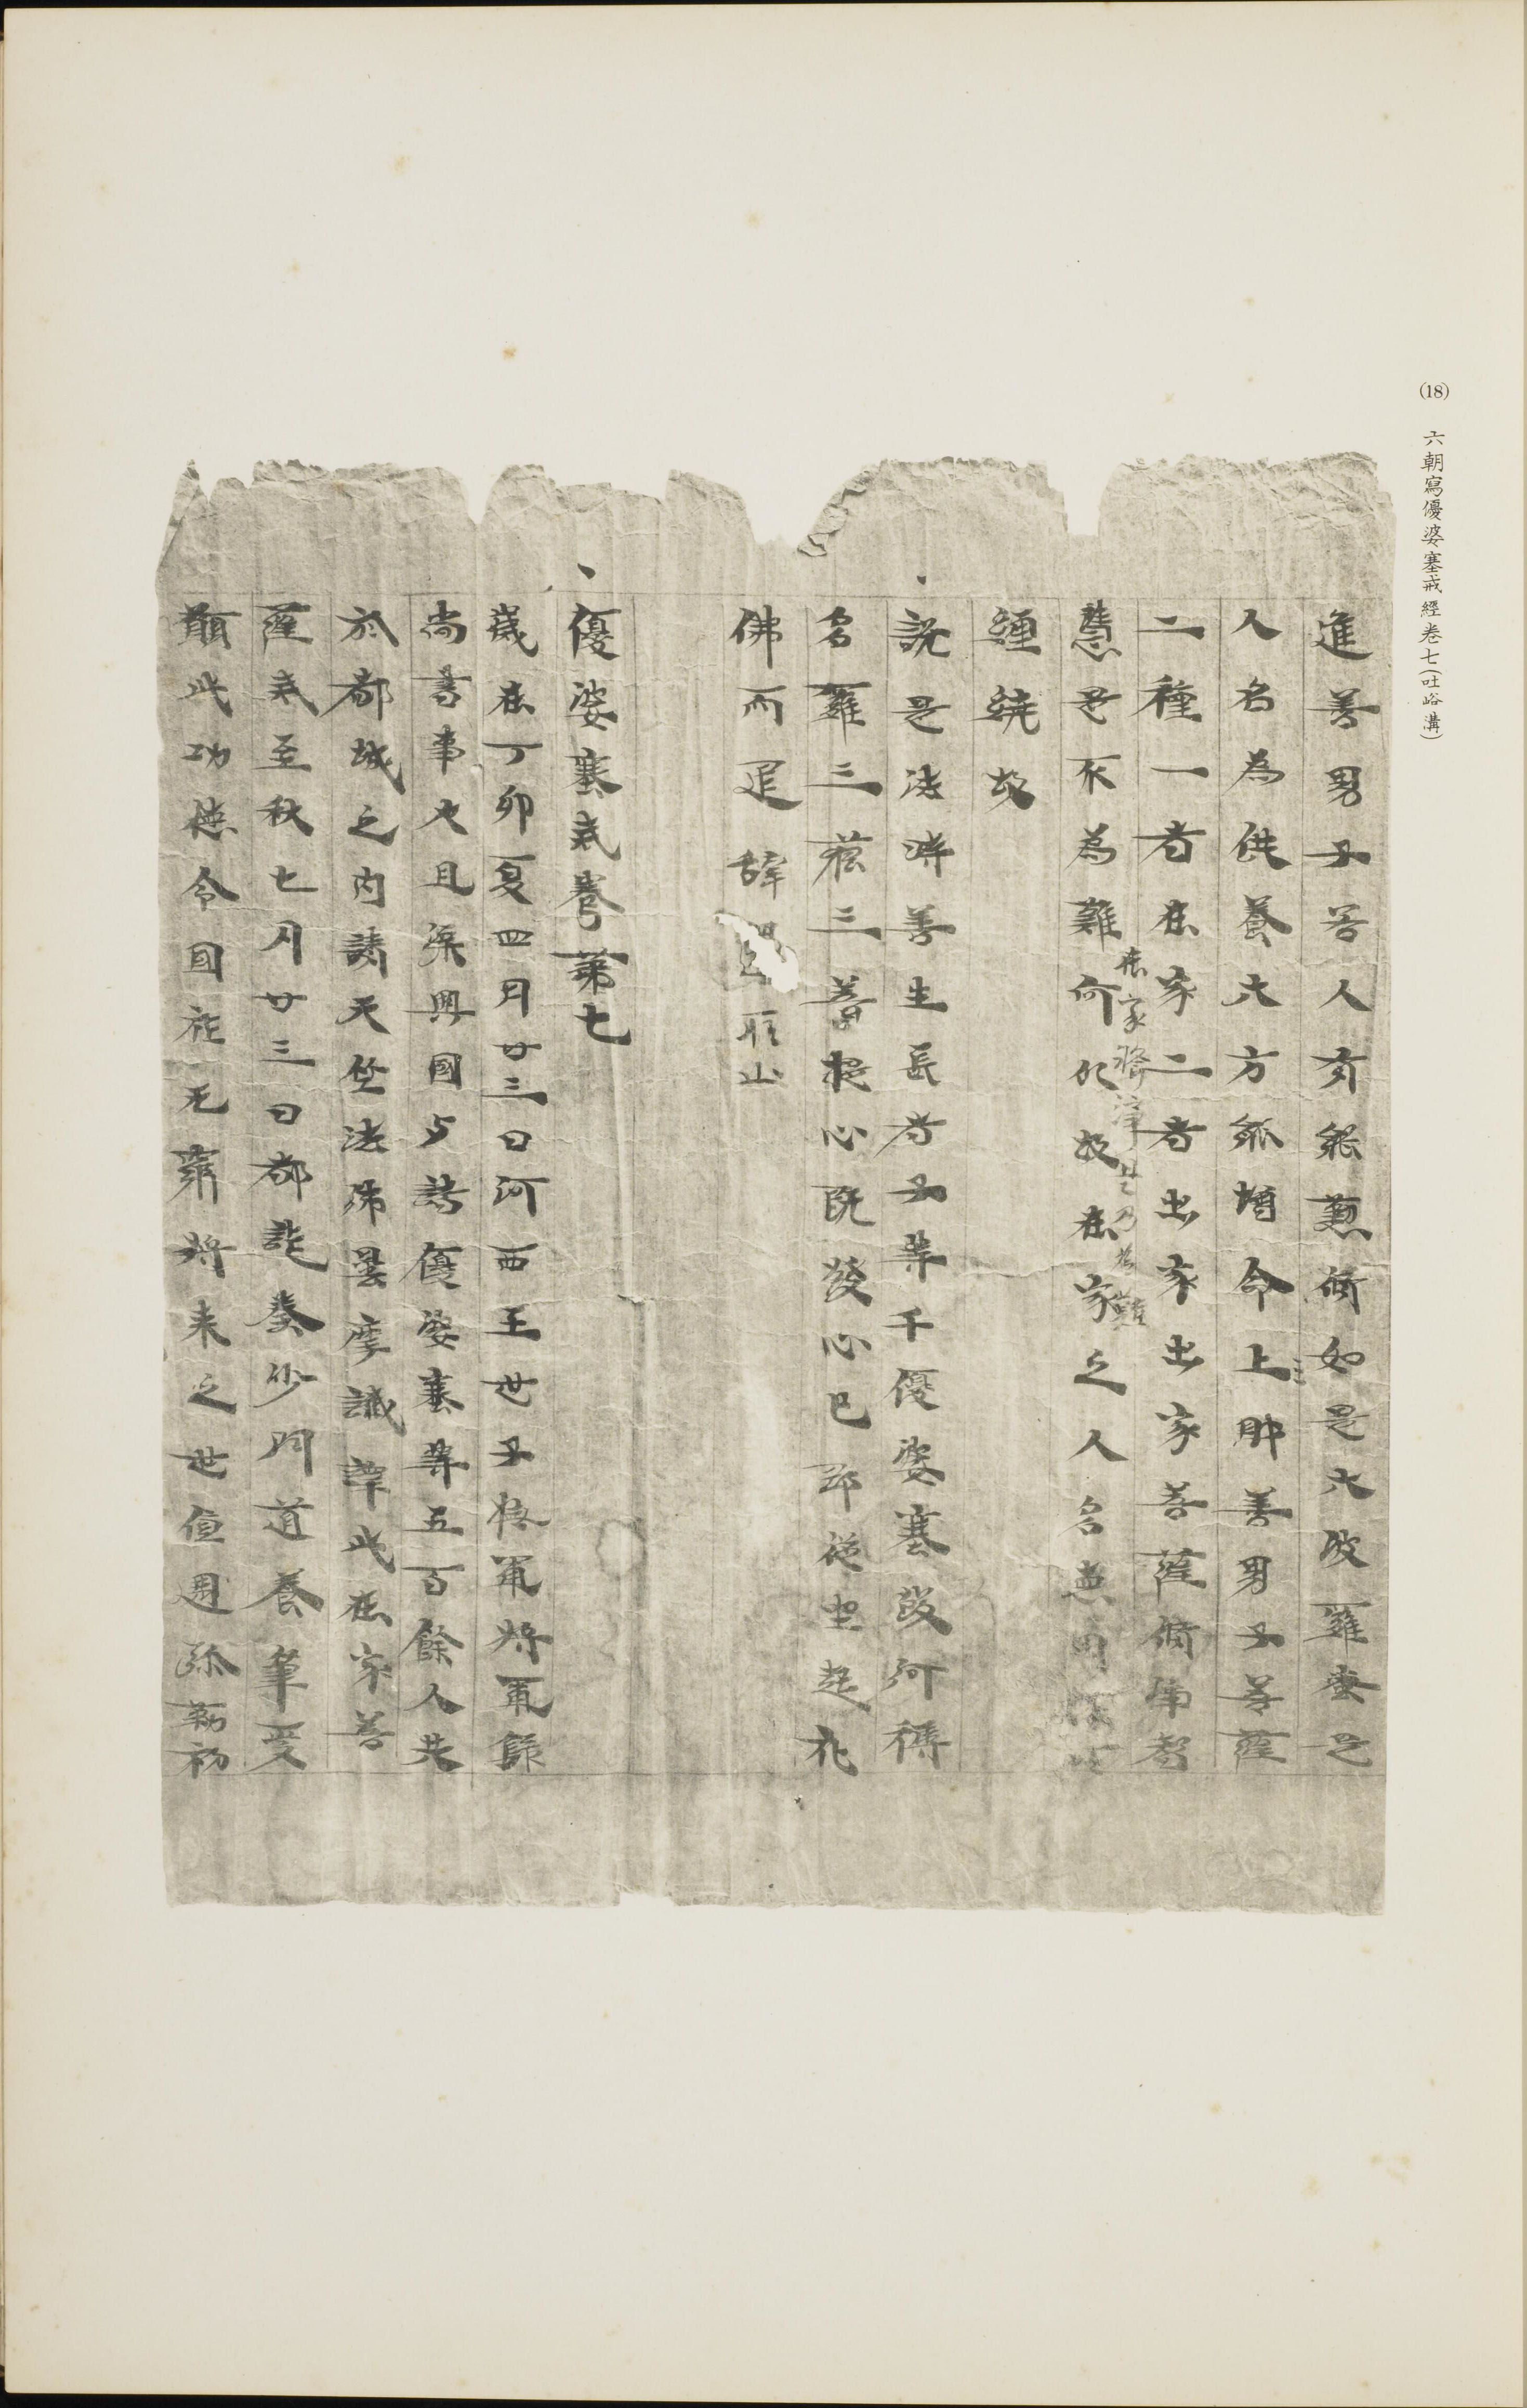 (18) 六朝寫優婆塞戒經卷七(吐峪溝)
進善男子若人有能懃脩如是六波羅蜜是
人名為供養六方能增命上財善男子菩薩
二種一者在家二者出家出家菩薩脩淨智
在家脩淨是乃為難
慧是不為難何以故在家之人名惡因
緾繞故
說是法時善生長者子等千優婆塞發阿耨
名羅三藐三菩提心既發心已即從坐起礼
佛而退辞還所止
優婆塞戒卷第七
歲在丁卯夏四月廿三日河西王世子撫軍將軍錄
尚書事大且渠興國与諸優婆塞等五百餘人共
於都城之內請天竺法師曇摩讖譯此在家菩
薩戒至秋七月廿三日都訖秦沙門道養筆受
願此功德令国祚无窮將来之世值遇弥勒初